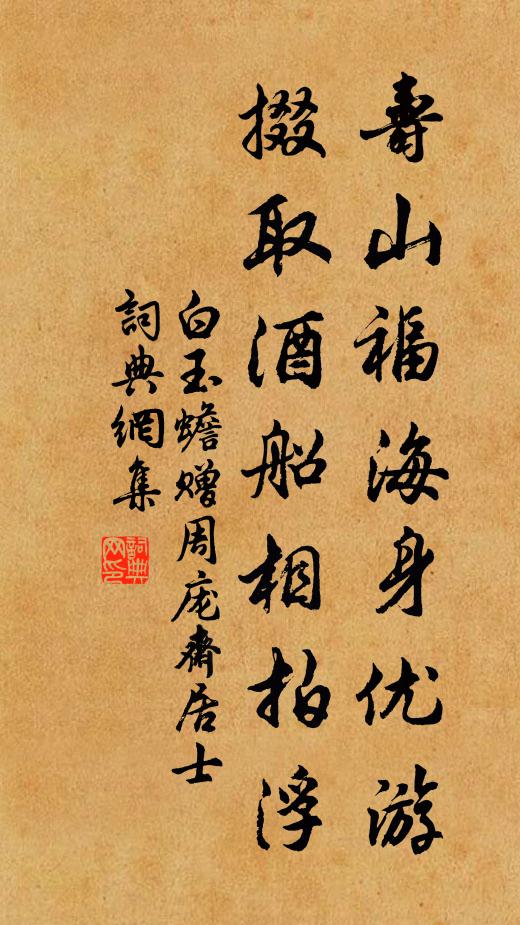 壽山福海身优游
掇取酒船相拍浮
白玉蟾赠周庞齋居士
詞典網集
詞典网印